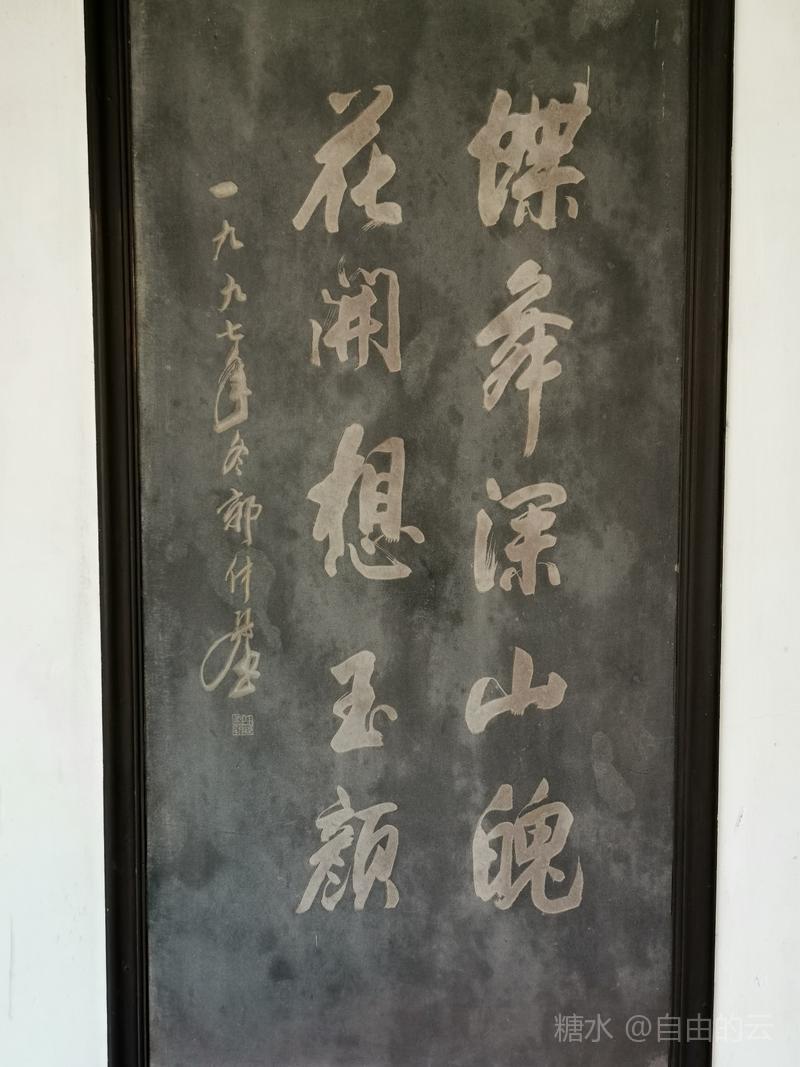 蝶舞深山魄
花開想玉顏
一九九七年冬郭仲選
糖水 @自由的云